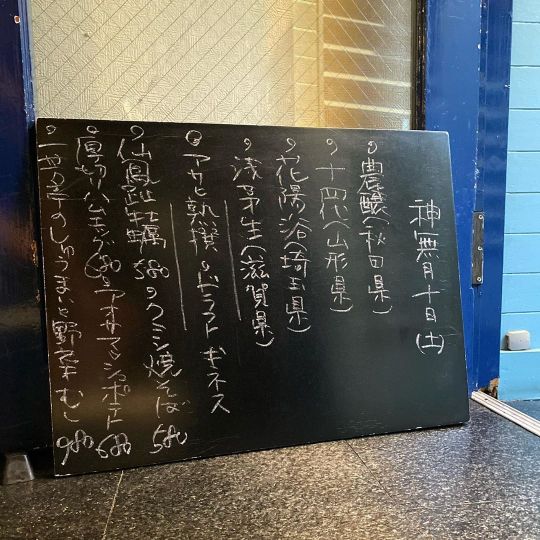 神無月十日(土)
○農醸(秋田県)
○十四代(山形県)
○花陽浴(埼玉県)
○浅茅生(滋賀県)
○アサヒ熟撰 ○ドラフトギネス
○仙鳳趾牡蠣580 ○クミン焼そば580
○厚切ハムエッグ680 ○アオサマッシュポテト680
○一芳亭のしゅうまいと野菜むし980